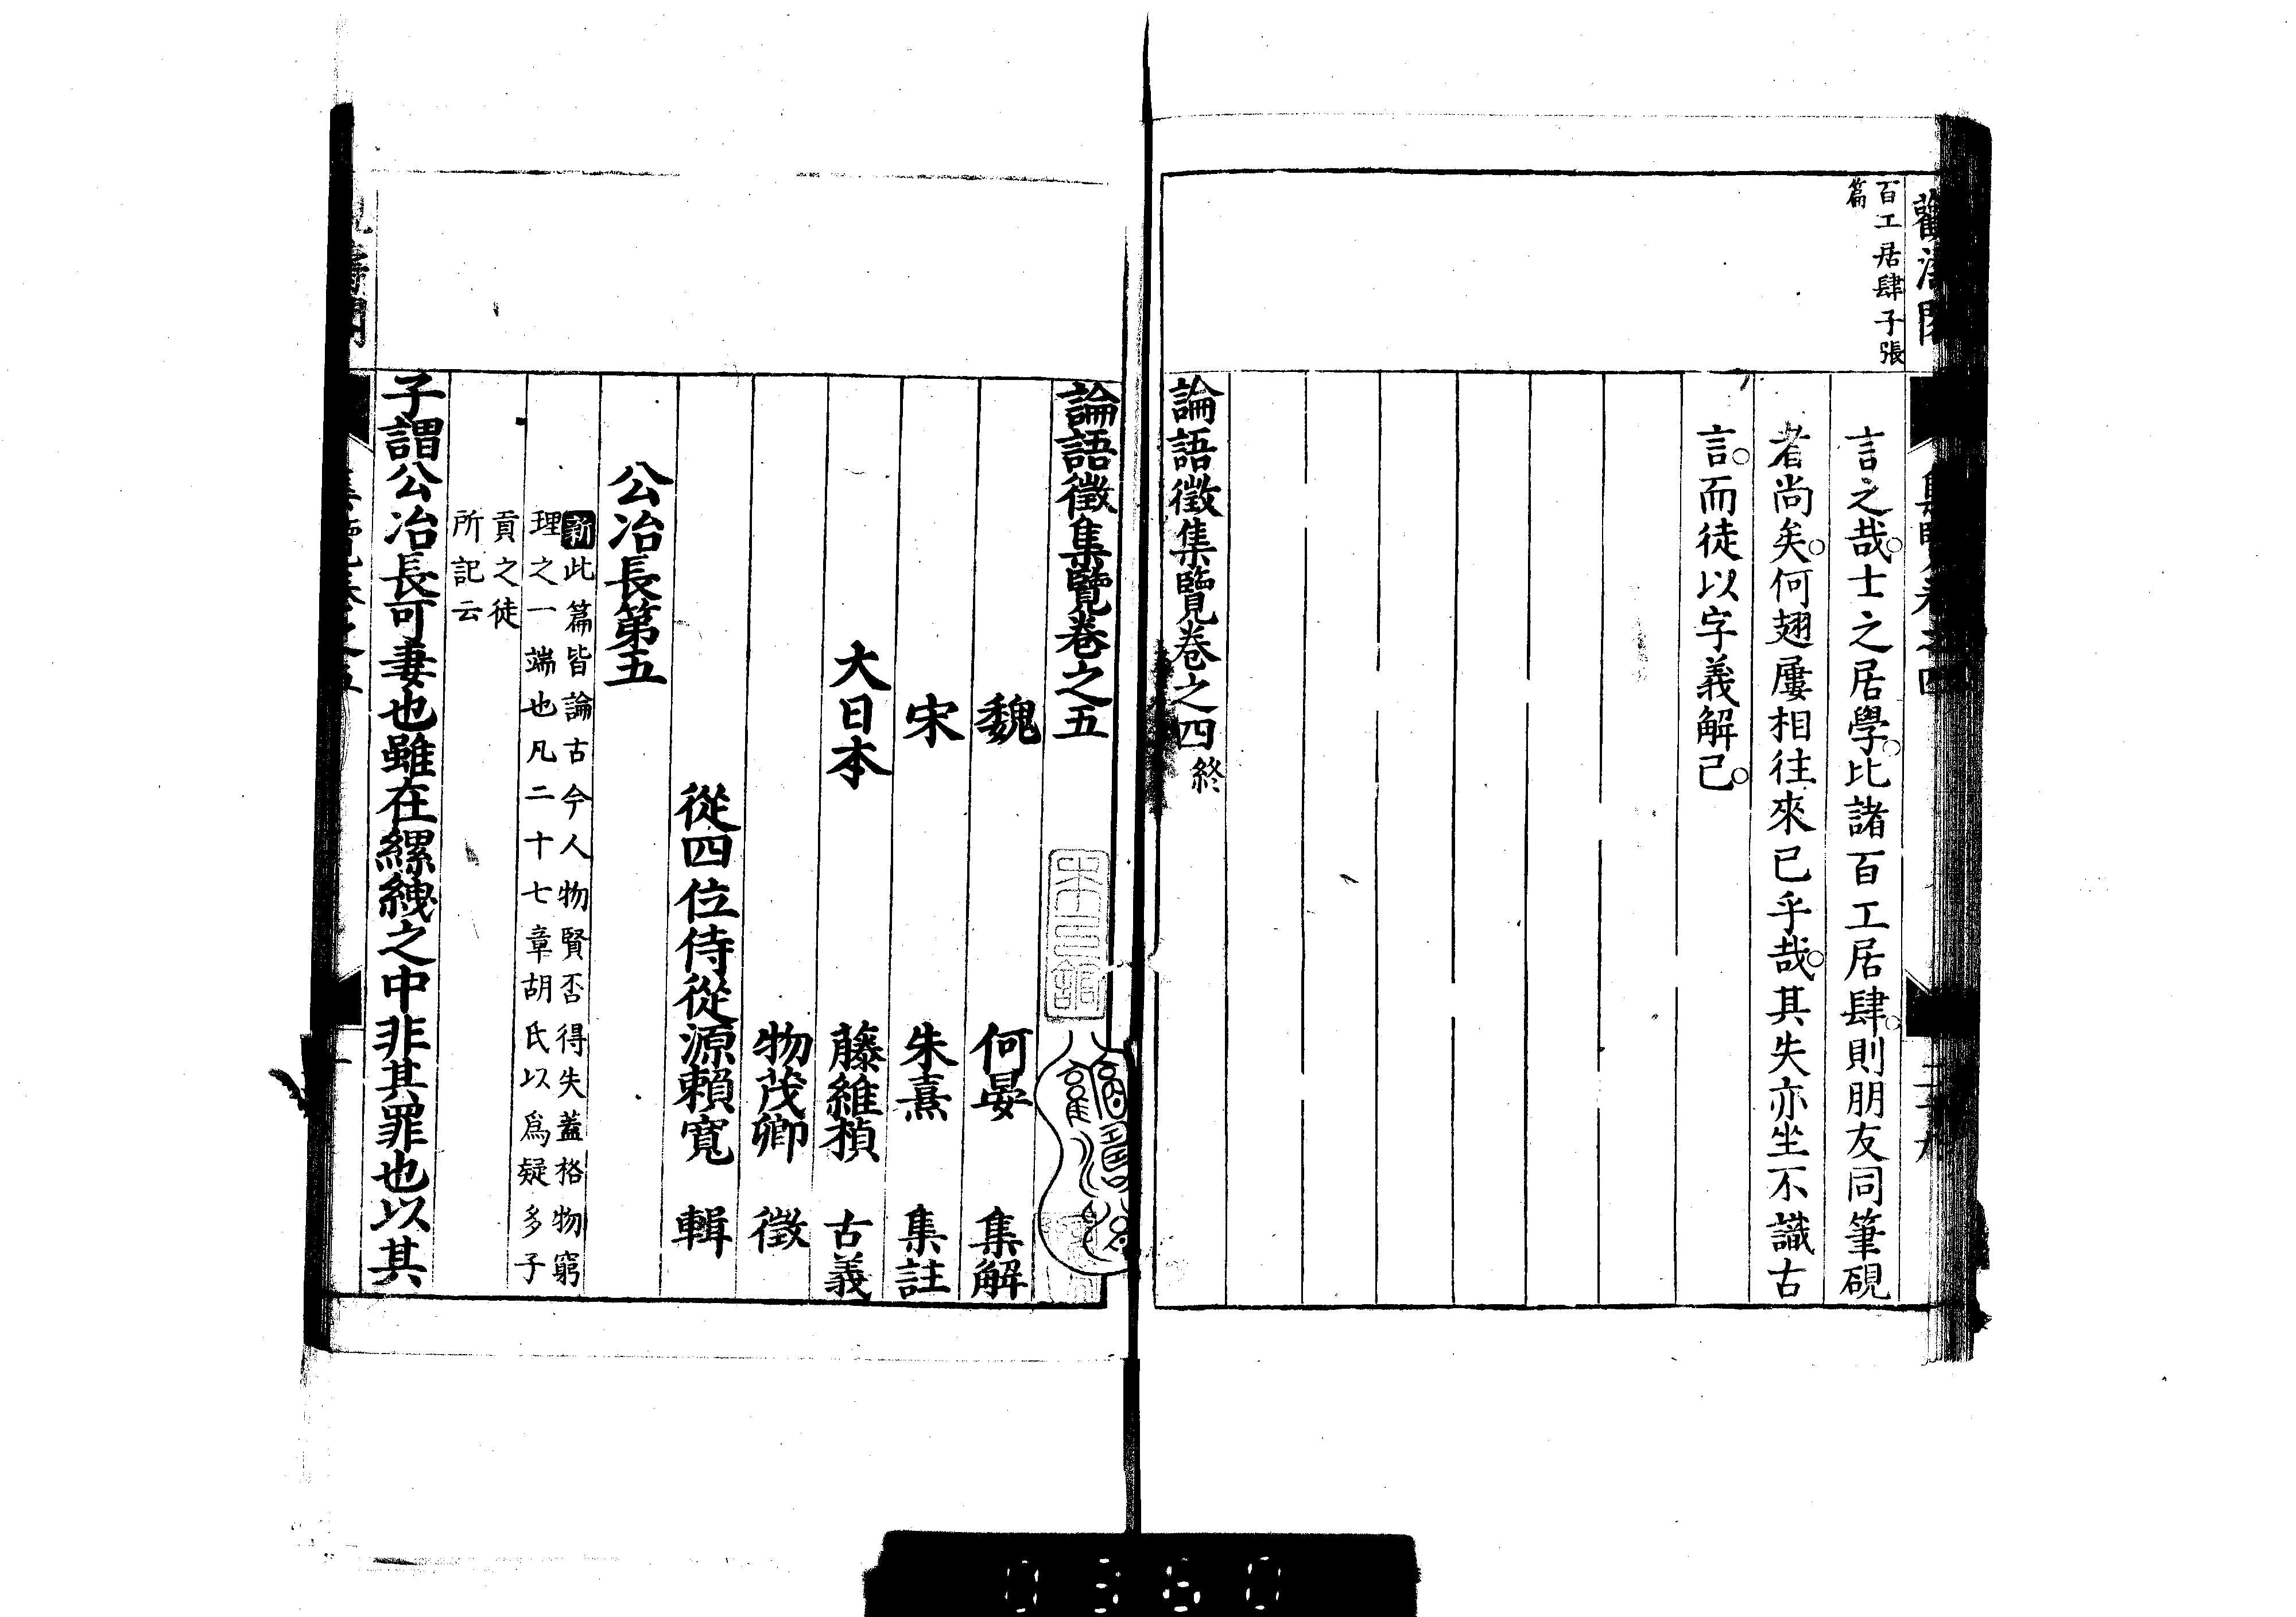 百工居肆子張
篇
言之哉。士之居學。比諸百工居肆。則朋友同筆硯
者尚矣。何翅屢相往來已乎哉。其失亦坐不識古
言。而徒以字義解已。
論語徵集覽卷之四終
論語徵集覽卷之五
魏 何晏 集解
宋 朱熹 集註
大日本 藤維楨 古義
物茂卿 徵
從四位侍從源賴寬 輯
公冶長第五
新此篇皆論古今人物賢否得失蓋格物窮
理之一端也凡二十七章胡氏以爲疑多子
貢之徒
所記云
子謂公冶長可妻也雖在縲絏之中非其罪也以其
0360